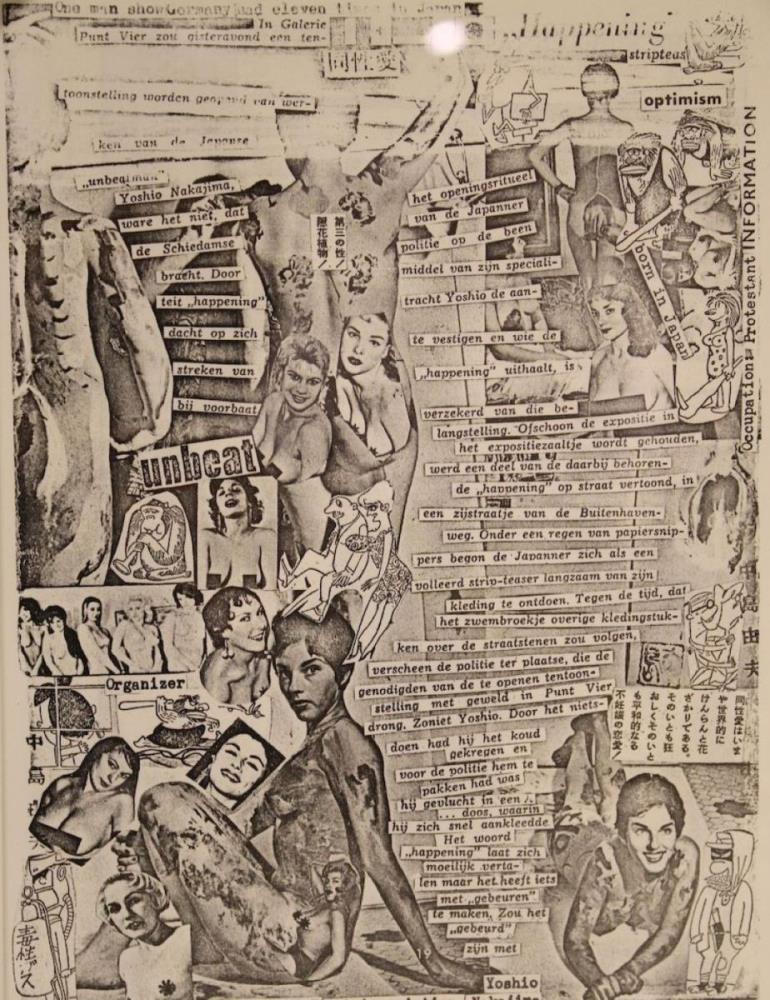 One man show Germany and eleven times in Japan
In Galerie
Punt Vier zou gisteravond een ten-
toonstelling worden geopend van wer-
ken van de Japanse
„unbeatman"
Yoshio Nakajima,
ware het niet, dat
de Schiedamse
bracht. Door
teit „happening"
dacht op zich
streken van
bij voorbaat
„Happening"
stripteas
同性愛
optimism
第三の性!
隠花植物!
het openingsritueel
van de Japanner
politie op de been
middel van zijn speciali-
tracht Yoshio de aan-
te vestigen en wie de
„happening" uithaalt, is
verzekerd van die be-
langstelling. Ofschoon de expositie in
het expositiezaaltje wordt gehouden,
werd een deel van de daarbij behoren-
de „happening" op straat vertoond, in
een zijstraatje van de Buitenhaven-
weg. Onder een regen van papiersnip-
pers begon de Japanner zich als een
volleerd strip-teaser langzaam van zijn
kleding te ontdoen. Tegen de tijd, dat
het zwembroekje overige kledingstuk-
ken over de straatstenen zou volgen,
verscheen de politie ter plaatse, die de
genodigden van de te openen tentoon-
stelling met geweld in Punt Vier
drong. Zoniet Yoshio. Door het niets-
doen had hij het koud
gekregen en
voor de politie hem te
pakken had was
hij gevlucht in een
... doos, waarin
hij zich snel aankleedde
Het woord
„happening" laat zich
moeilijk verta-
len maar het heeft iets
met „gebeuren"
te maken. Zou het
„gebeurd"
zijn met
Yoshio
born in Japan
Occupation: Protestant INFORMATION
unbeat
Organizer
中島由夫
同性愛はいま
や世界的に
けんらんと花
ざかりである。
そのいとも狂
おしくそのいと
も平和的なる
不妊娠の恋愛!
中島
毒性ガス
19